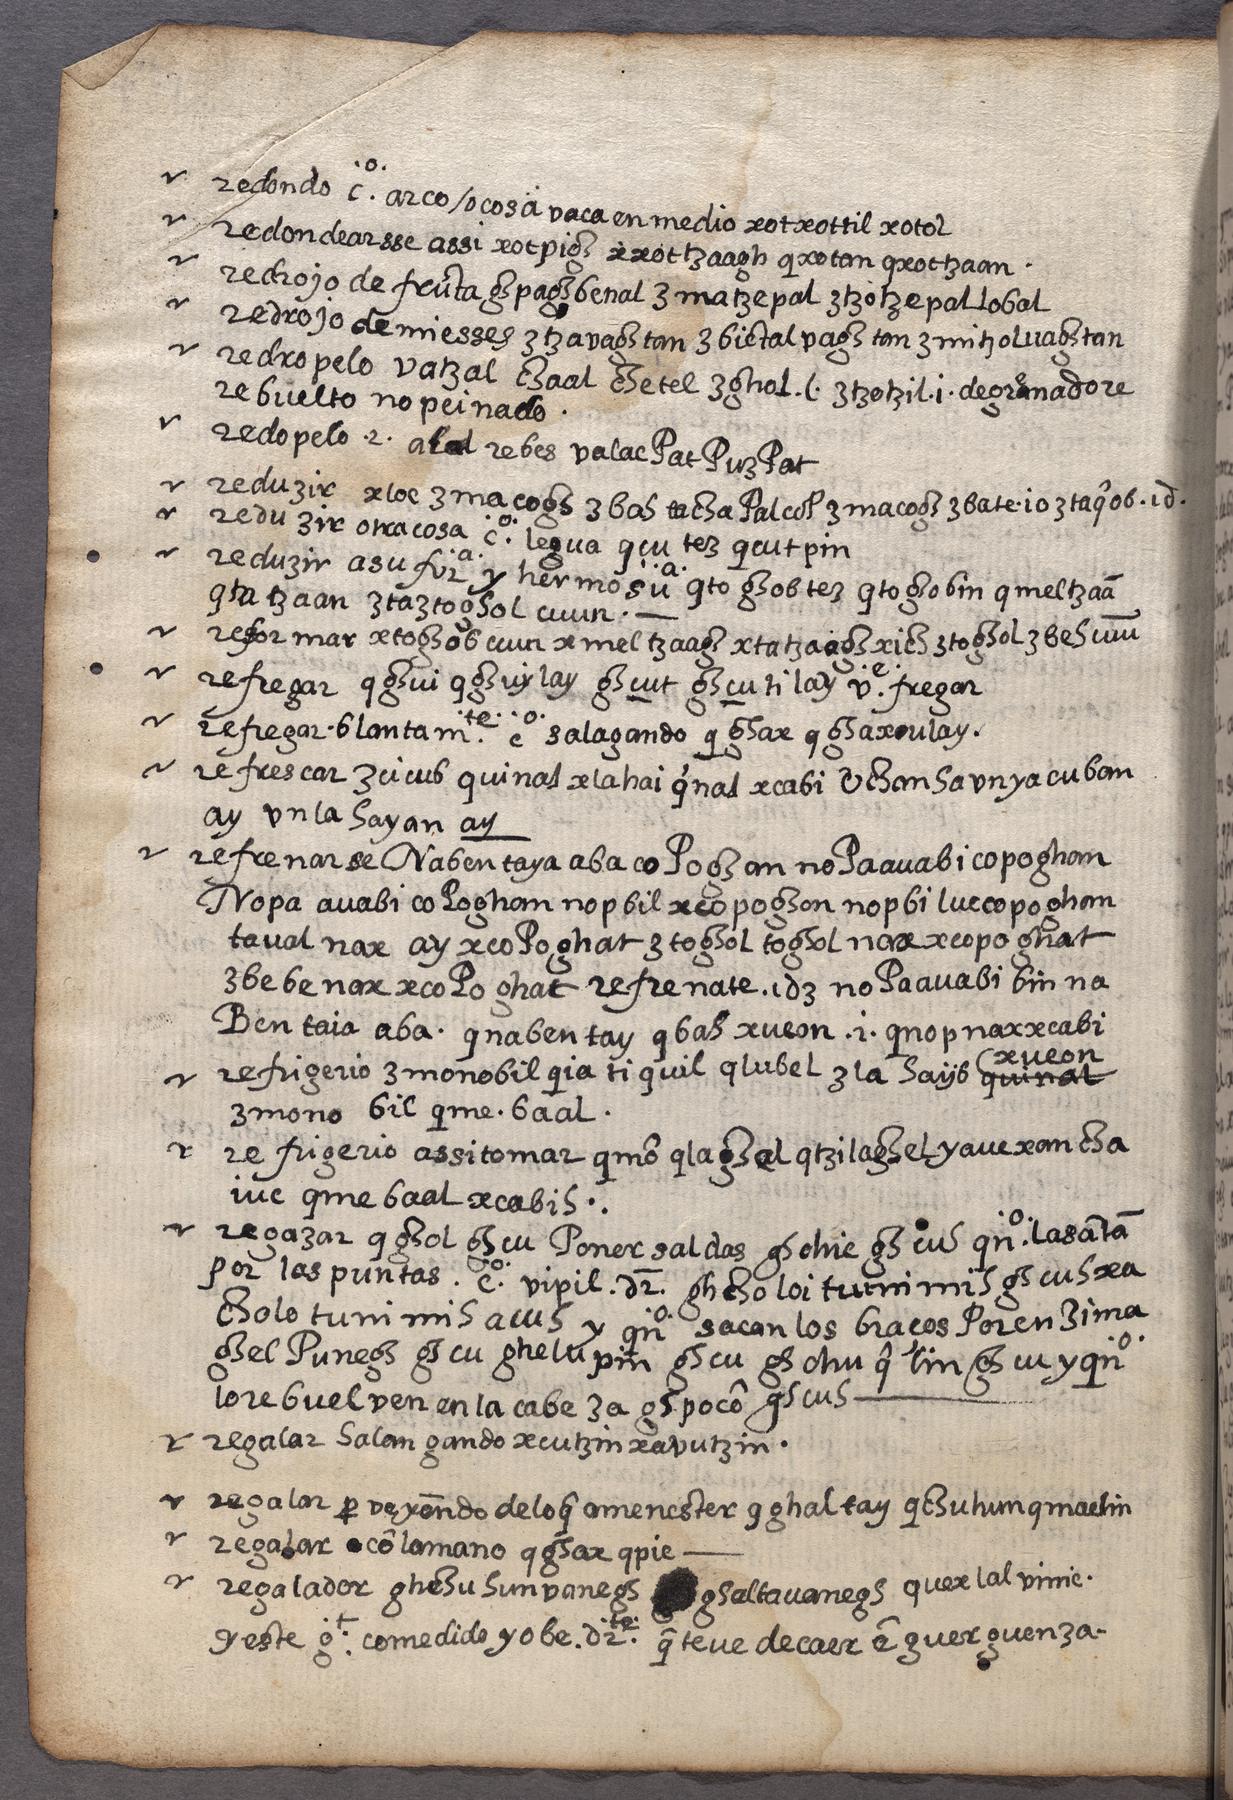 redondo c.º arco / o cosa vaca en medio xotxottil xotol
redondearsse assi xotpigh xxottzaagh qxotan qxottzaan.
redrojo de fruta ghpaghbenal zmatzepal ztzotzepal lobal
redrojo de miesses ztzavaghtan zbictal vaghtan zmitzoluaghtan
redropelo vatzal chaal chetel zghol .l. ztzotzil .i. degrenado re
rebuelto no peinado.
redopelo .r. al rebes valacPat PuzPat
reduzir xloc zmacogh zbah tacha Palcol zmacogh zbate. io ztaq̂ob. id.
reduzir otra cosa c.º legua qcu tez qcutpin
reduzir a su fur.ª y hermos.ª qto ghobtez qtoghobin qmeltzaā
qtatzaan ztaztoghol cuun. —
reformar xtoghob cuun xmeltzaagh xtatzaagh xich ztoghol zbeh cuun
refregar qghui qghuylay ghcut ghcutilay v.e fregar
refregar blantam.te c.º salagando qghax qghaxoulay.
refrescar zcicub quinal xlahai q̂nal xcabi Uchan havnyacuban
ay vnlahayan ay
refrenarse Nabentaya aba coPoghan noPaauabi copoghan
Nopa auabi coPoghan nopbil xcopoghan nopbiluc copoghan
taual nax ay xcoPoghat ztoghol toghol nax xcopoghat
zbebenax xcoPoghat refrenate .idz noPaauabi bin na
Bentaia aba. qnabentay qbah xueon .i. qnopnaxxcabi
refrigerio zmonobil qia ti quil qlubel zla hayb quinal xueon
zmono bil qme. baal.
refrigerio assi tomar qmō qlaghel qtzilaghel yauexan cha
iuc qme baal xcabih..
regazar qghol ghcu Poner saldas ghchic ghcuh qn.º las atā
por las puntas. c.º vipil. dr̄. ghcholoi tunimih ghcuh xa
cholo tunimih acuh y qn.º sacan los braços Por enzima
ghel Punegh ghcu ghelupin ghcu ghchu q̂ lin ghcu y qn.º
lo rebuelven en la cabeza ghpocō ghcuh —
regalar halangando xcutzin xavutzin.
regalar p veyendo de loq̄ a menester qghaltay qchuhun qmaelin
regalar cō la mano qghax qpic —
regalador ghchuhunvanegh ghaltauanegh quexlal vinic.
y este g.t comedido y obe. dr.te q̄ teue de caer ē guerguenza.